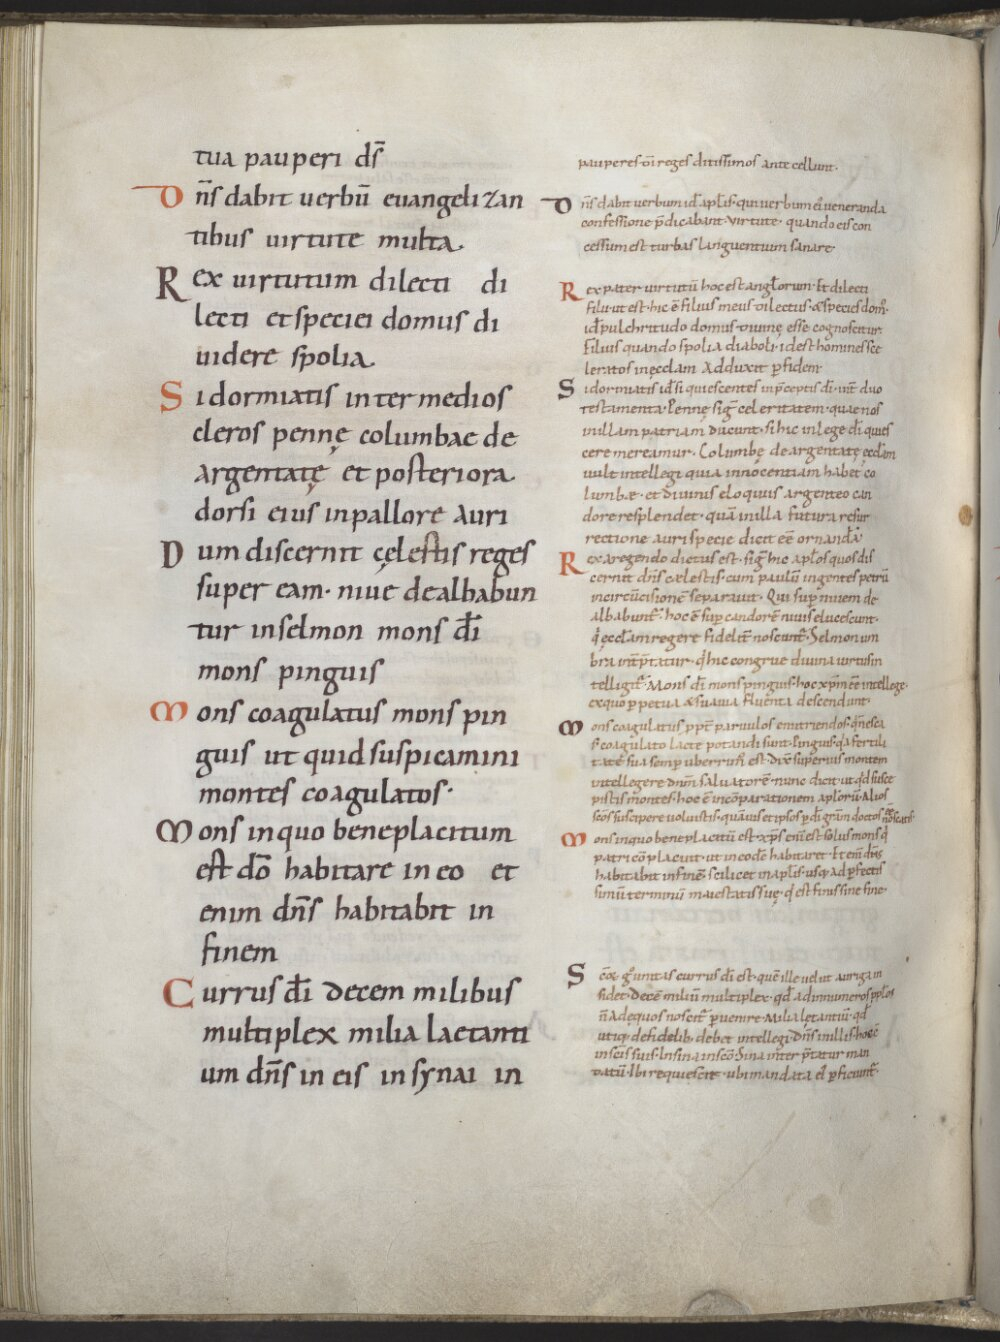 tua pauperi ds̄
Dn̄s dabit verbū euangelizan
tibus uirtute multa.
Rex uirtutum dilecti di
lecti et speciei domus di
uidere spolia.
Si dormiatis inter medios
cleros pennę columbae de
argentatę et posteriora
dorsi eius in pallore auri
Dum discernit cęlestis reges
super eam. niue dealbabun
tur in selmon mons dī
mons pinguis
Mons coagulatus mons pin
guis ut quid suspicamini
montes coagulatos.
Mons in quo beneplacitum
est dō habitare in eo et
enim dn̄s habitabit in
finem
Currus dī decem milibus
multiplex milia laetanti
um dn̄s in eis in synai in
pauperes ditissimos antecellunt.
Dn̄s dabit uerbum id apl̄is qui uerbum ei ueneranda
confessione p̄dicabant. uirtute. quando eis con
cessum est turbas languentium sanare
Rex pater uirtutū hoc est angl̄orum. Et dilecti
filii ut est. hic ē filius meus dilectus. & species dom;
id pulchritudo domus diuinę esse cognoscitur.
Filius quando spolia diaboli. id est homines sce
leratos in ęclam adduxit p fidem
Si dormiatis id si quiescentes in p̄ceptis dī. int duo
testamenta. Pennę siḡ celeritatem. quae nos
in illam patriam ducunt. si hic in lege dī quies
cere mereamur. Columbę deargentatę ęcclam
uult intellegi quia innocentiam habet co
lumbae. et diuinis eloquiis argenteo can
dore resplendet. quā in illa futura resur
rectione auri specie dicit eē ornandā
Rex a regendo dictus est. siḡ hic apl̄os quos dis
cernit dn̄s cælestis. cum paulū in gentes petrū
in circūcisionē separauit. Qui sup niuem de
albabunt. hoc ē sup candorē niuis elucescunt.
qi ęcclam regere fideliter noscunt. Selmon um
bra intp̄tatur. qd hic congrue diuina uirtus in
telligit. Mons dī mons pinguis. hoc xp̄m eē intellege.
ex quo ppetua & suauia fluenta descendunt.
Mons coagulatus ppt paruulos enutriendos. qi nesca
s; coagulato lacte potandi sunt. Pinguis. qa fertili
tate sua semp uberrimus est. Dixit superius montem
intellegere dnm̄ saluatorē. nunc dicit. ut qd susce
pistis montes. hoc ē in cōparationem apl̄orū. Alios
scōs suscipere uoluistis. quāuis et ipsos p dī gram doctos eē noscatis.
Mons in quo beneplacitū est xp̄s enī est solus mons qi
patri cōplacuit. ut in eo dē habitaret. Et enī dn̄s
habitabit in finē. scilicet in apl̄is. usq; ad pfectis
simū terminū maiestatis suę. qd est finis sine fine.
Scōꝝ g° unitas currus dī est. quē ille uelut auriga in
sidet. Decē miliū multiplex. qd ad innumeros pplos
n̄ adequos noscit puenire. Milia lętantiū. qd
utiq; de fidelib; debet intellegi. Dn̄s in illis. hoc ē
in scīs suis. In sina in scō. Sina inter p̄tatur man
datū. Ibi requiescit. ubi mandata ei pficiunt.